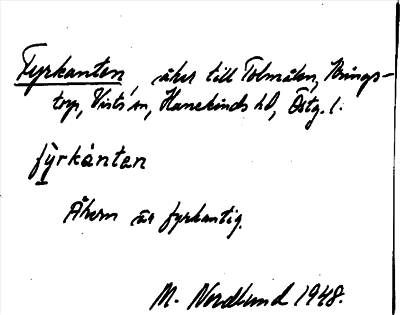 Fyrkanten, åker till Tolmålen, Krings-
torp, Vists sn, Hanekinds hd, Östg. l.
fy̆rkánten
Åkern är fyrkantig.
M. Nordlund 1948.